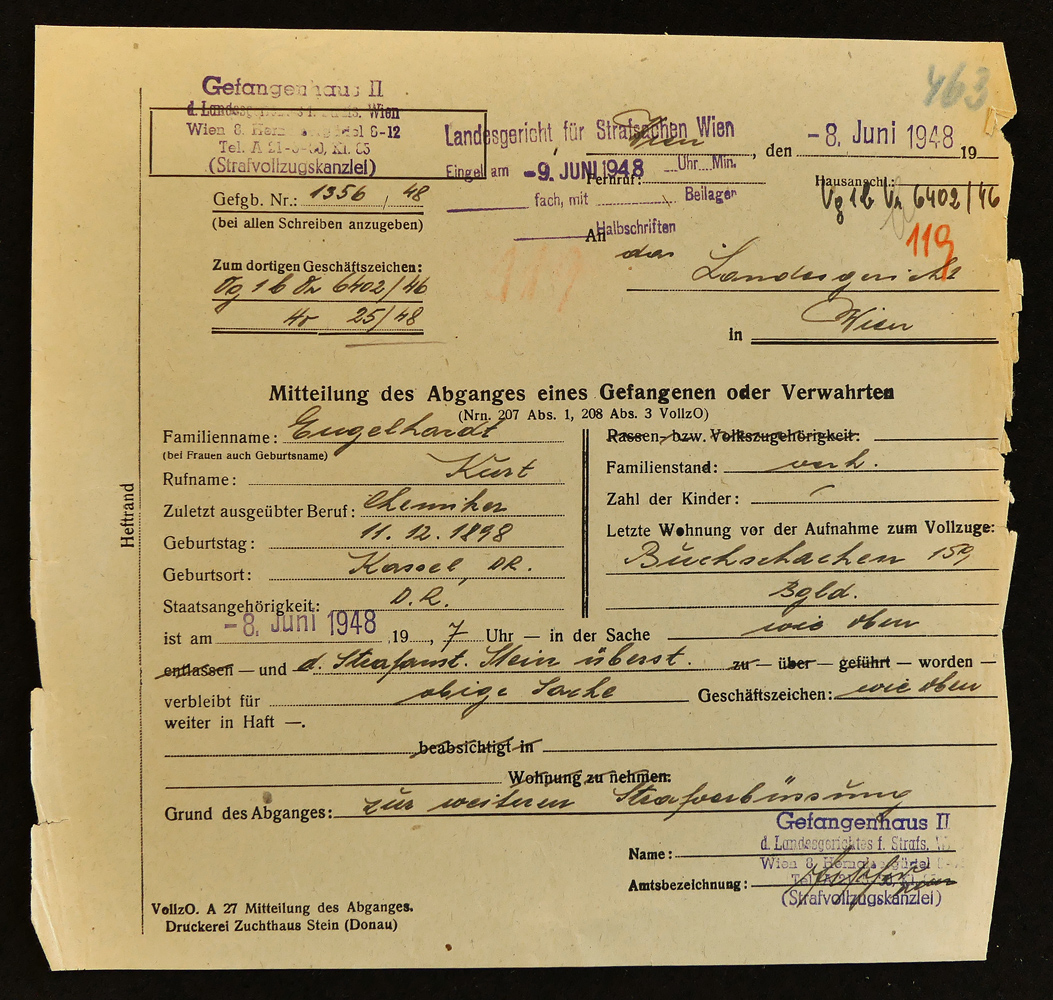 463
Gefangenhaus II
d. Landesgerichtes f. Strafs. Wien
Wien 8. Hernalsergürtel 6-12
(Strafvollzugskanzlei)
Landesgericht für Strafsachen Wien
Eingel. am -9. JUNI 1948 Uhr Min.
fach, mit Beilagen
Halbschriften
Wien, den -8. Juni 1948 19
Fernruf:
Hausanschl.:
Vg 1b Vr 6402/46
119
Gefgb. Nr.: 1356 / 48
(bei allen Schreiben anzugeben)
Zum dortigen Geschäftszeichen:
Vg 1b Vr 6402/46
25/48
An
das Landesgericht
in Wien
119
Mitteilung des Abganges eines Gefangenen oder Verwahrten
(Nrn. 207 Abs. 1, 208 Abs. 3 VollzO)
Heftrand
Familienname: Engelhardt
(bei Frauen auch Geburtsname)
Rufname: Kurt
Zuletzt ausgeübter Beruf: Chemiker
Geburtstag: 11.12.1898
Geburtsort: Kassel, D.R.
Staatsangehörigkeit: D.R.
Rassen- bzw. Volkszugehörigkeit:
Familienstand: verh.
Zahl der Kinder: /
Letzte Wohnung vor der Aufnahme zum Vollzuge:
Buchschachen 159
Bgld.
ist am -8. Juni 1948 19 , 7 Uhr — in der Sache wie oben
entlassen — und d. Strafanst. Stein überst. zu — über — geführt — worden —
verbleibt für obige Sache Geschäftszeichen: wie oben
weiter in Haft —.
beabsichtigt in
Wohnung zu nehmen.
Grund des Abganges: zur weiteren Strafverbüssung
Gefangenhaus II
d. Landesgerichtes f. Strafs. Wien
Name:
Wien 8. Hernalsergürtel
Amtsbezeichnung:
(Strafvollzugskanzlei)
VollzO. A 27 Mitteilung des Abganges.
Druckerei Zuchthaus Stein (Donau)